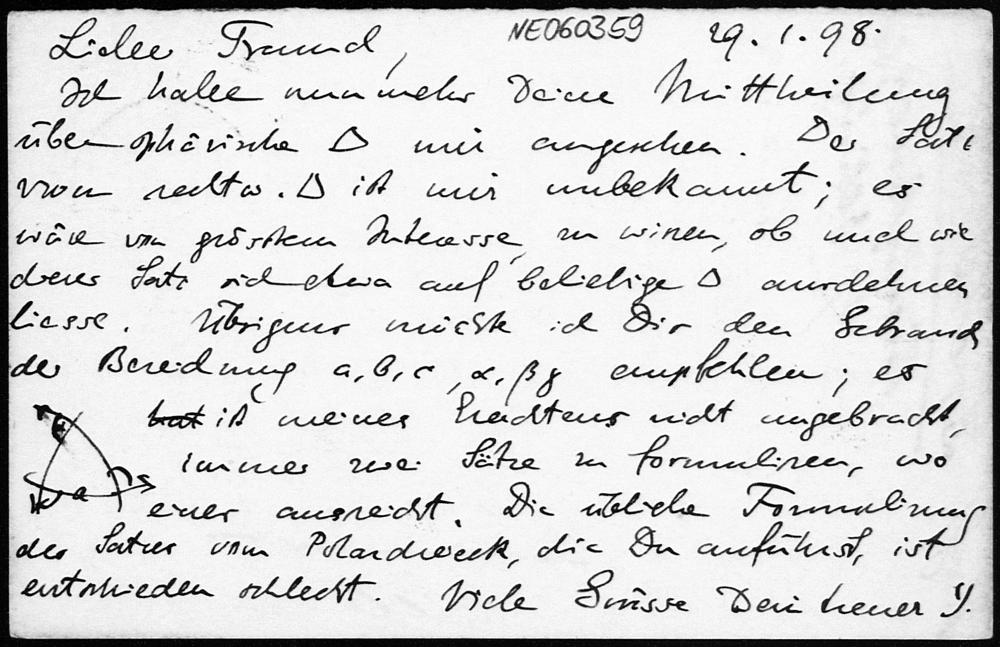 NE060359
29. 1. 98.
Lieber Freund,
Ich habe nunmehr Deine Mittheilung
über sphärische Δ mir angesehen. Der Satz
vom rechtw. Δ ist mir unbekannt; es
wäre von grösstem Interesse, zu wissen, ob und wie
dieser Satz sich etwa auf beliebige Δ ausdehnen
liesse. Übrigens möchte ich Dir den Gebrauch
der Bezeichnung a, b, c, α, β, γ empfehlen; es
hat ist meines Erachtens nicht angebracht,
immer zwei Sätze zu formuliren, wo
a
einer ausreicht. Die übliche Formulirung
des Satzes vom Polardreieck, die Du anführst, ist
entschieden schlecht. Viele Grüsse Dein treuer